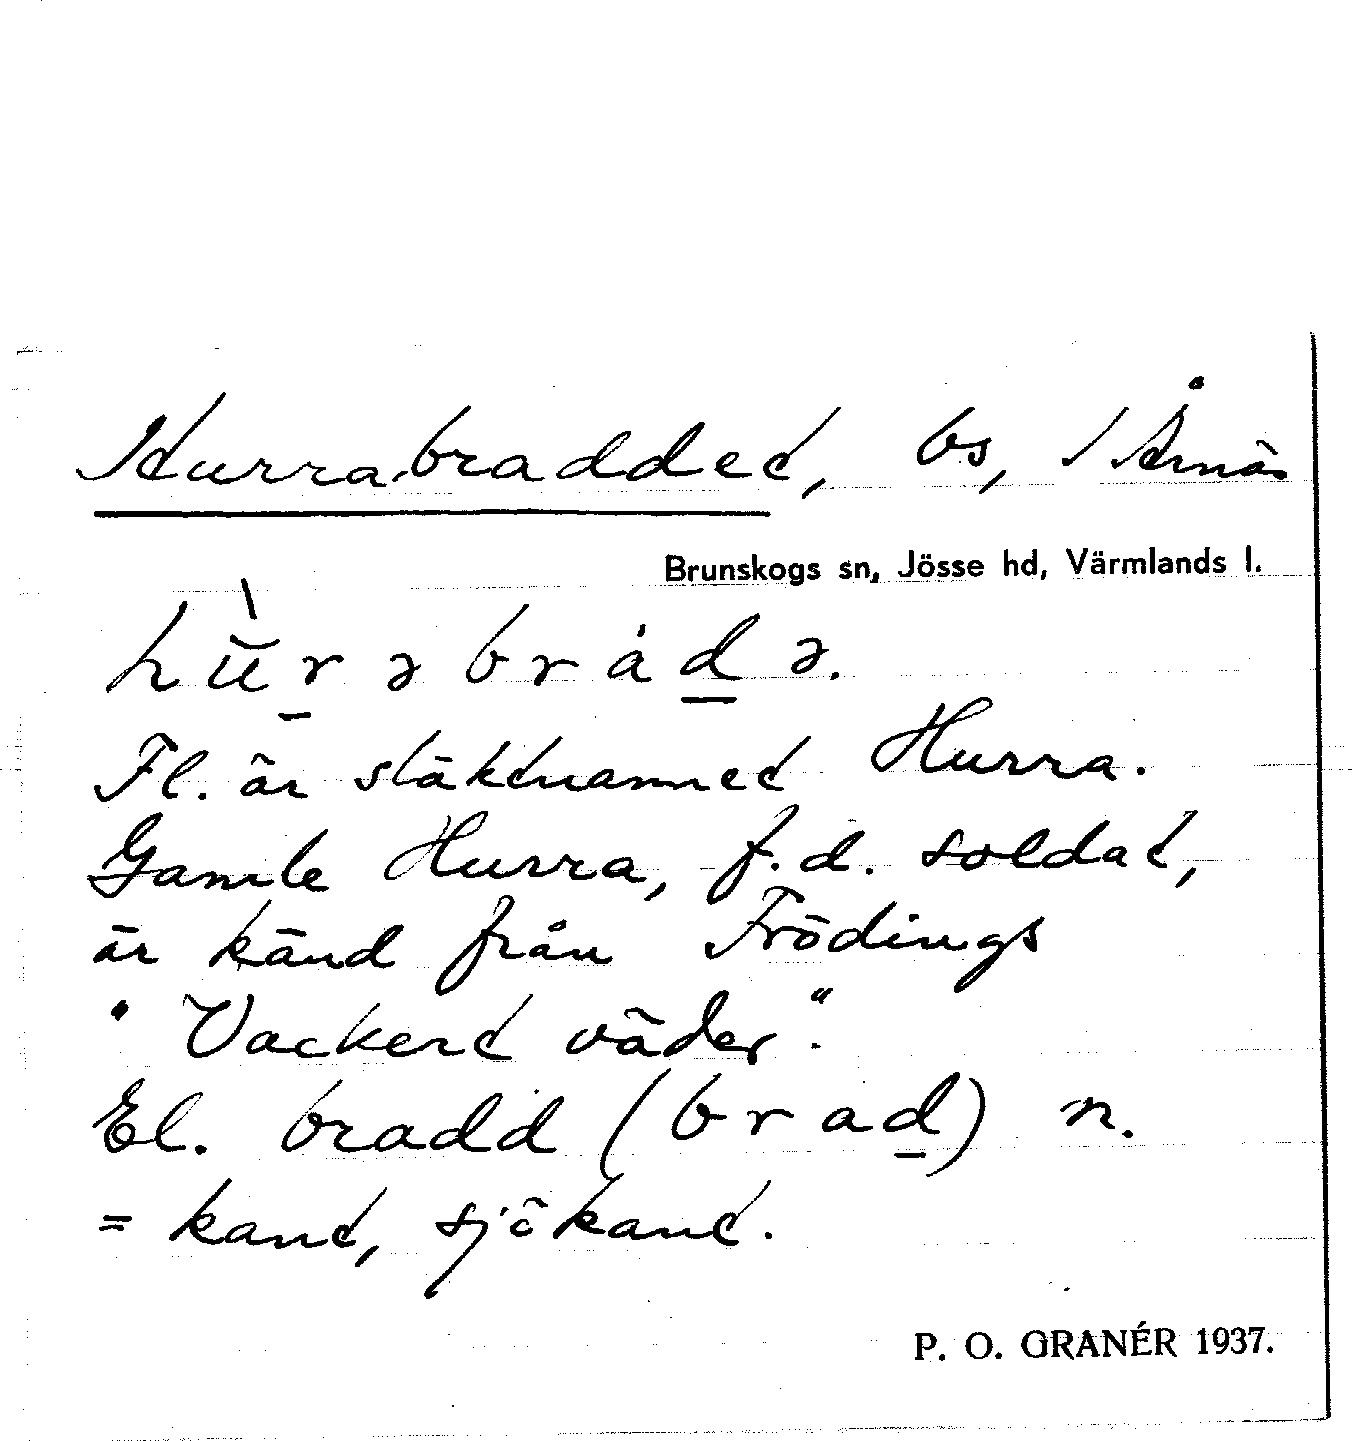 Hurrabraddet, bs, / Årnäs
Brunskogs sn, Jösse hd, Värmlands l.
hŭ̀r̲əbråd̲ə.
Fl. är släktnamnet Hurra.
Gamle Hurra, f.d. soldat,
är känd från Frödings
"Vackert väder".
El. bradd (brad̲) n.
= kant, sjökant.
P. O. GRANÉR 1937.